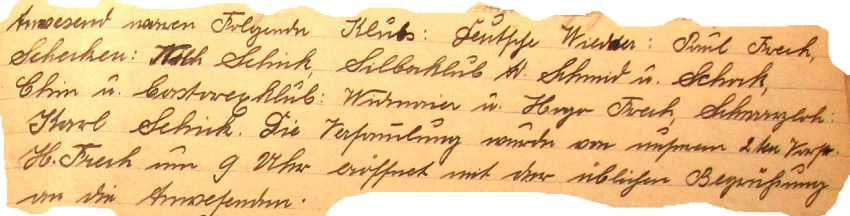 Anwesend waren Folgende Klubs: Deutsche Wieder: Paul Frech,
Schecken: Schick, Silberklub H. Schmid u. Schock,
Chin u. Castorexklub: Widmaier u. Hugo Frech, Schwarzloh:
Karl Schick. Die Versamlung wurde von unserem 2ten Vorst.
H. Frech um 9 Uhr eröffnet mit der üblichen Begrüßung
an die Anwesenden.